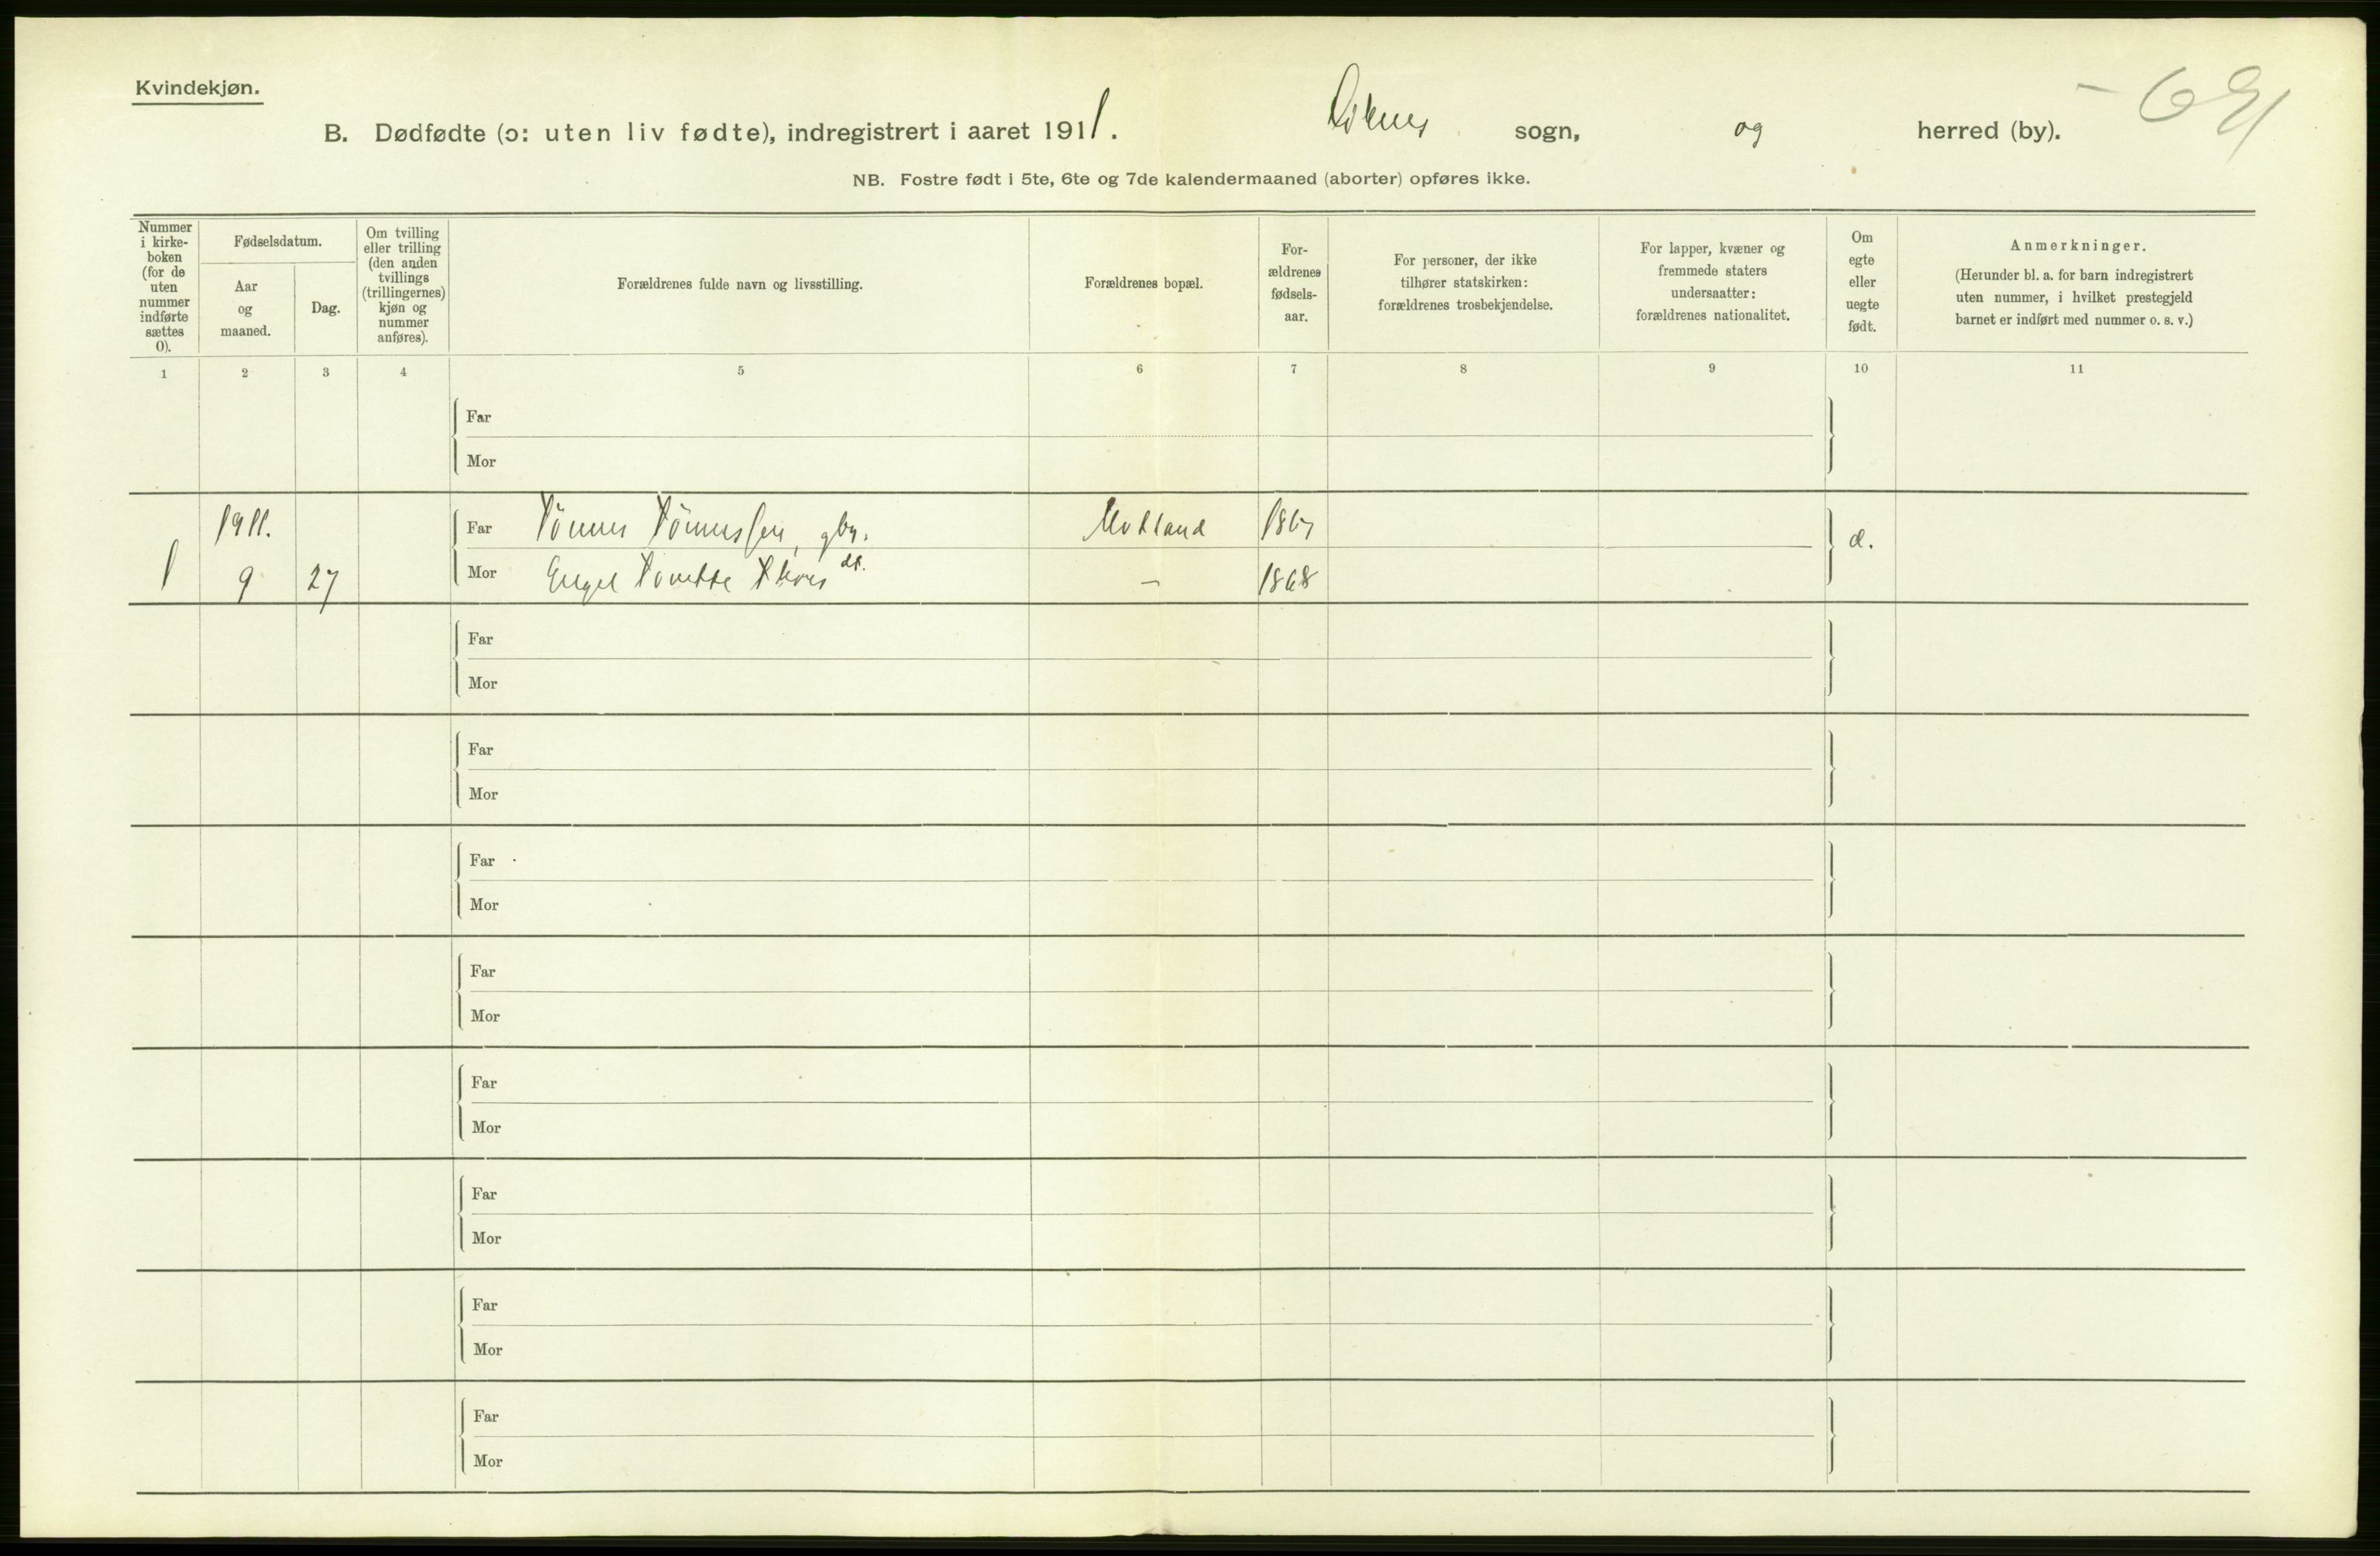 Kvindekjøn.
B. Dødfødte (ɔ: uten liv fødte), indregistrert i aaret 1911. sogn, og herred (by).
NB. Fostre født i 5te, 6te og 7de kalendermaaned (aborter) opføres ikke.
Nummer i kirke-boken (for de uten nummer indførte sættes 0).
Fødselsdatum.
Aar og maaned.
Dag.
Om tvilling eller trilling (den anden tvillings (trillingernes) kjøn og nummer anføres).
Forældrenes fulde navn og livsstilling.
Forældrenes bopæl.
For-ældrenes fødsels-aar.
For personer, der ikke tilhører statskirken: forældrenes trosbekjendelse.
For lapper, kvæner og fremmede staters undersaatter: forældrenes nationalitet.
Om egte eller uegte født.
Anmerkninger.
(Herunder bl. a. for barn indregistrert uten nummer, i hvilket prestegjeld barnet er indført med nummer o. s. v.)
1 2 3 4 5 6 7 8 9 10 11
Far
Mor
1911.
Far Tönnes Tönnessen, gbr.
1 9 27
Mor Engel Tonette dt. – 1868
Far
Mor
Far
Mor
Far
Mor
Far
Mor
Far
Mor
Far
Mor
Far
Mor
Far
Mor